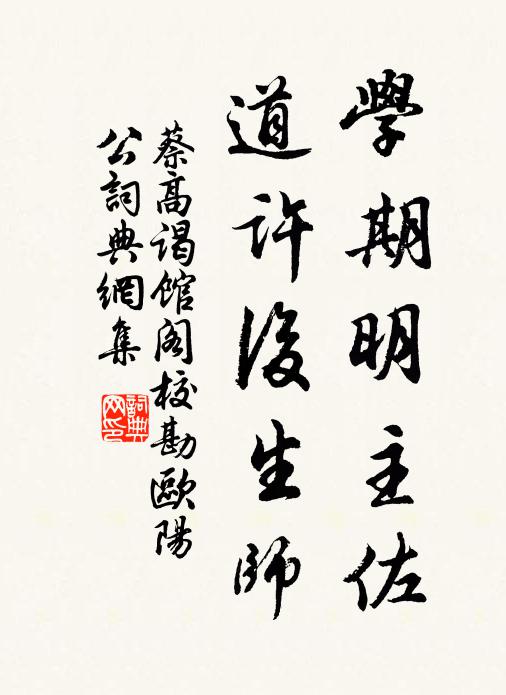 學期明主佐
道許後生師
蔡高謁館閣校勘歐陽
公詞典網集
詞典
网印